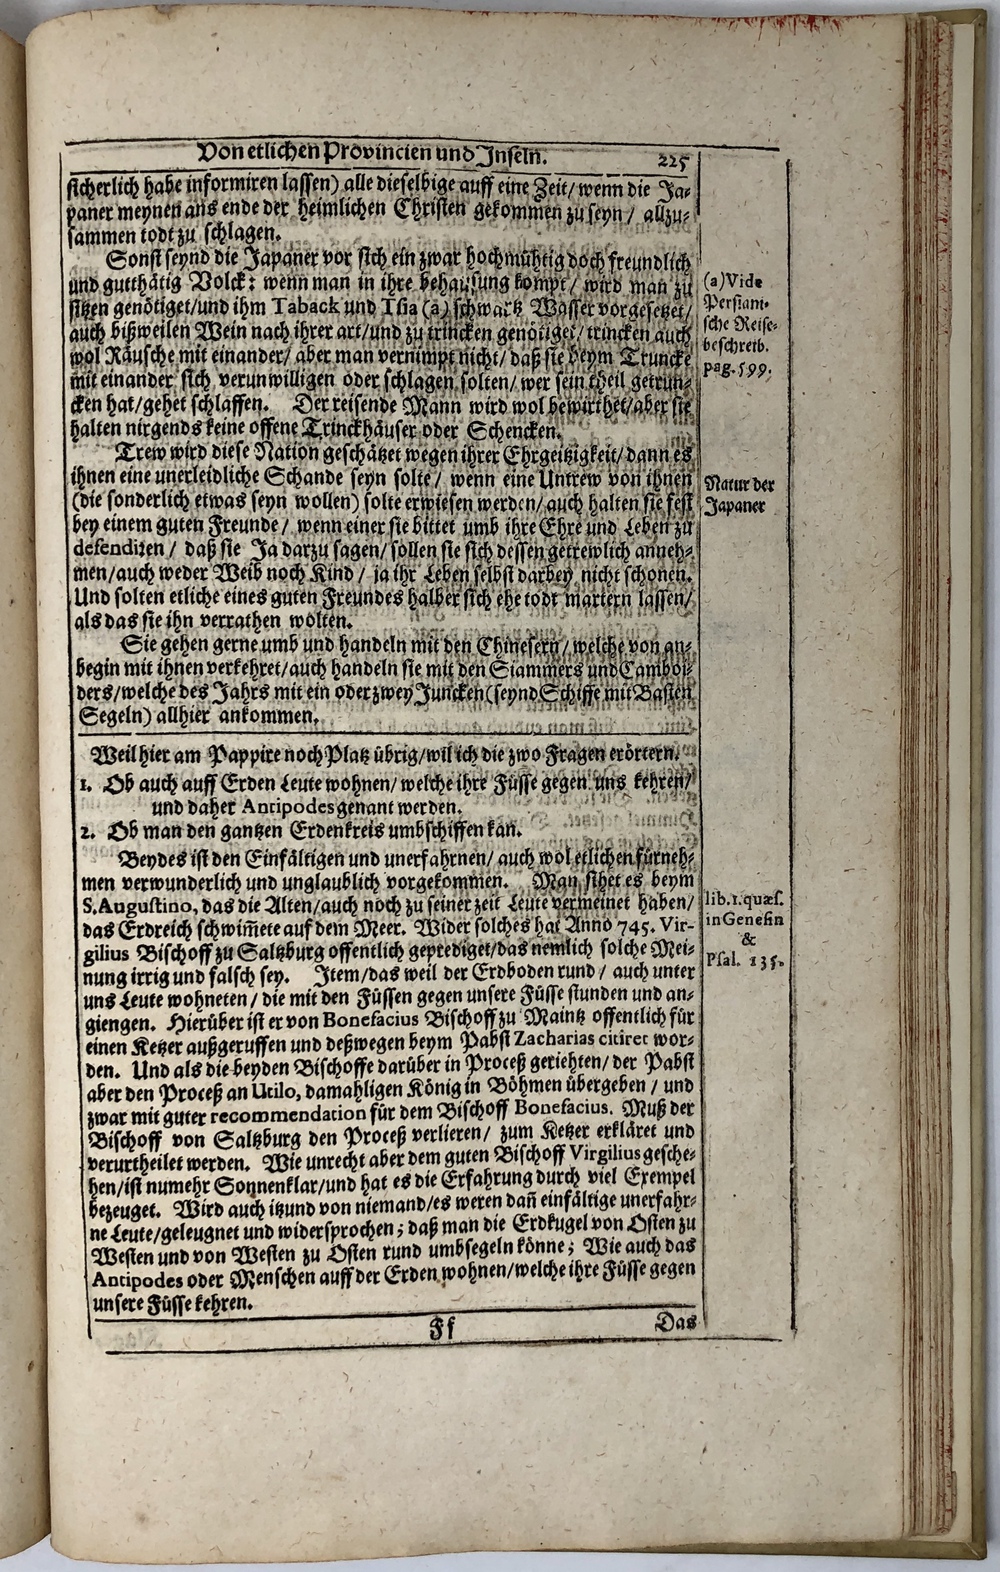 Von etlichen Provincien und Inseln. 225
sicherlich habe informiren lassen) alle dieselbige auff eine Zeit/ wenn die Ja-
paner meynen ans ende der heimlichen Christen gekommen zu seyn/ allzu-
sammen todt zu schlagen.
Sonst seynd die Japaner vor sich ein zwar hochmühtig doch freundlich
und gutthätig Volck: wenn man in ihre behausung kompt/ wird man zu
sitzen genötiget/und ihm Taback und Tsia (a) schwartz Wasser vorgesetzet/
auch bißweilen Wein nach ihrer art/und zu trincken genötiget/ trincken auch
wol Räusche mit einander/ aber man vernimpt nicht/ daß sie beym Truncke
mit einander sich verunwilligen oder schlagen solten/ wer sein theil getrun-
cken hat/gehet schlaffen. Der reisende Mann wird wol bewirthet/aber sie
halten nirgends keine offene Trinckhäuser oder Schencken.
(a) Vide
Persiani-
sche Reise-
beschreib.
pag. 599.
Trew wird diese Nation geschätzet wegen ihrer Ehrgeitzigkeit/ dann es
ihnen eine unerleidliche Schande seyn solte/ wenn eine Untrew von ihnen
(die sonderlich etwas seyn wollen) solte erwiesen werden/ auch halten sie fest
bey einem guten Freunde/ wenn einer sie bittet umb ihre Ehre und Leben zu
defendiren/ daß sie Ja darzu sagen/ sollen sie sich dessen getrewlich anneh-
men/auch weder Weib noch Kind/ ja ihr Leben selbst darbey nicht schonen.
Und solten etliche eines guten Freundes halber sich ehe todt martern lassen/
als das sie ihn verrathen wolten.
Natur der
Japaner
Sie gehen gerne umb und handeln mit den Chinesern/ welche von an-
begin mit ihnen verkehret/auch handeln sie mit den Siammers und Camboi-
ders/welche des Jahrs mit ein oder zwey Juncken (seynd Schiffe mit Basten
Segeln) allhier ankommen.
Weil hier am Pappire noch Platz übrig/wil ich die zwo Fragen erörtern.
1. Ob auch auff Erden Leute wohnen/ welche ihre Füsse gegen uns kehren/
und daher Antipodes genant werden.
2. Ob man den gantzen Erdenkreis umbschiffen kan.
Beydes ist den Einfältigen und unerfahrnen/ auch wol etlichen fürneh-
men verwunderlich und unglaublich vorgekommen. Man sihet es beym
S. Augustino, das die Alten/auch noch zu seiner zeit Leute vermeinet haben/
das Erdreich schwim̃ete auf dem Meer. Wider solches hat Anno 745. Vir-
gilius Bischoff zu Saltzburg offentlich geprediget/das nemlich solche Mei-
nung irrig und falsch sey. Item/das weil der Erdboden rund/ auch unter
uns Leute wohneten/ die mit den Füssen gegen unsere Füsse stunden und an-
giengen. Hierüber ist er von Bonefacius Bischoff zu Maintz offentlich für
einen Ketzer außgeruffen und deßwegen beym Pabst Zacharias citiret wor-
den. Und als die beyden Bischoffe darüber in Proceß geriehten/ der Pabst
aber den Proceß an Utilo, damahligen König in Böhmen übergeben/ und
zwar mit guter recommendation für dem Bischoff Bonefacius. Muß der
Bischoff von Saltzburg den Proceß verlieren/ zum Ketzer erkläret und
verurtheilet werden. Wie unrecht aber dem guten Bischoff Virgilius gesche-
hen/ist numehr Sonnenklar/und hat es die Erfahrung durch viel Exempel
bezeuget. Wird auch itzund von niemand/es weren dañ einfältige unerfahr-
ne Leute/geleugnet und widersprochen; daß man die Erdkugel von Osten zu
Westen und von Westen zu Osten rund umbsegeln könne; Wie auch das
Antipodes oder Menschen auff der Erden wohnen/welche ihre Füsse gegen
unsere Füsse kehren.
lib. 1. quæs.
in Genesin
&
Psal. 135.
Ff Das